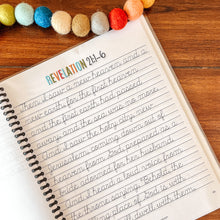 REVELATION 21:1-6
Then I saw a new heaven and a
new earth for the first heaven
and the first earth had passed
away, and the sea was no more.
And I saw the holy city, new
Jerusalem, coming down out of
heaven from God, prepared as a
bride adorned for her husband.
And I heard a loud voice from
the throne saying, "Behold, the
dwelling place of God is with